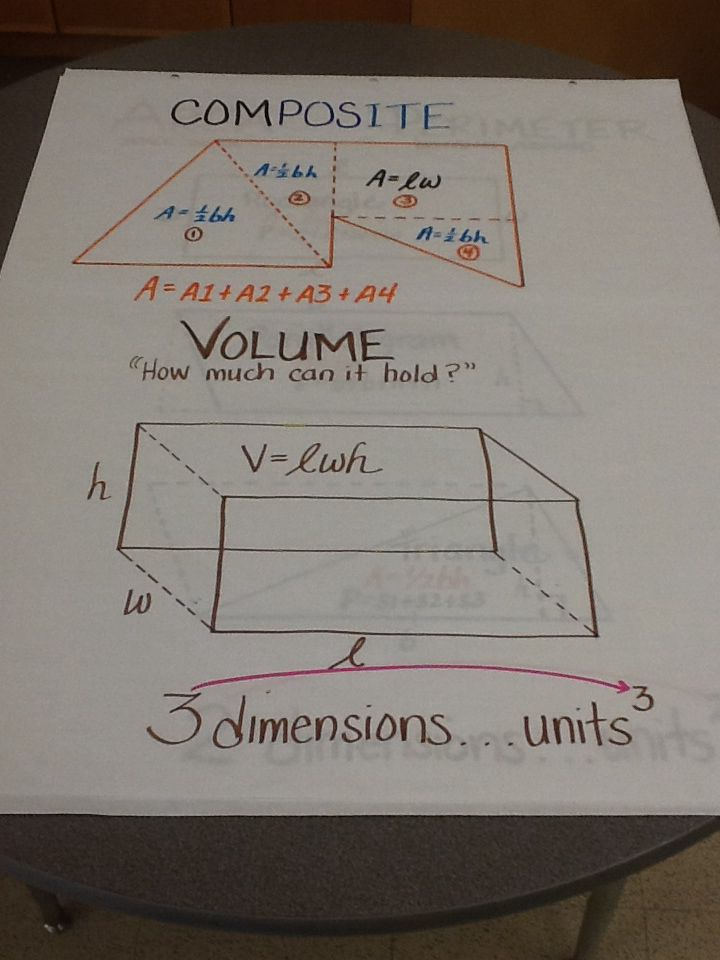 COMPOSITE
A=½bh
②
A=lw
③
A=½bh
①
A=½bh
④
A=A1+A2+A3+A4
VOLUME
"How much can it hold?"
V=lwh
h
w
l
3 dimensions...units³